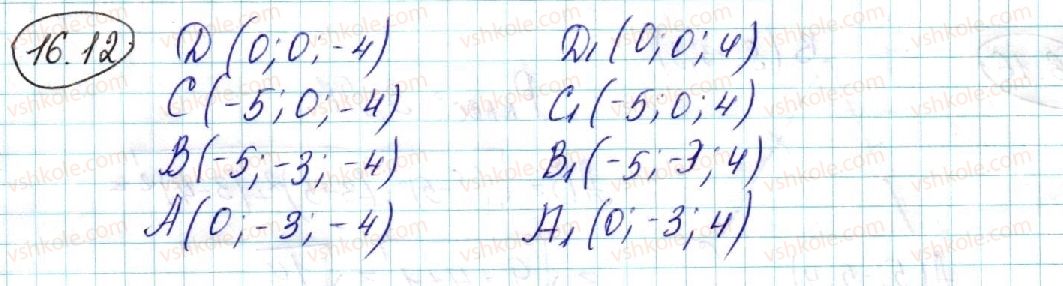 16.12 D (0; 0; -4) D₁ (0; 0; 4)
C (-5; 0; -4) C₁ (-5; 0; 4)
B (-5; -3; -4) B₁ (-5; -3; 4)
A (0; -3; -4) A₁ (0; -3; 4)